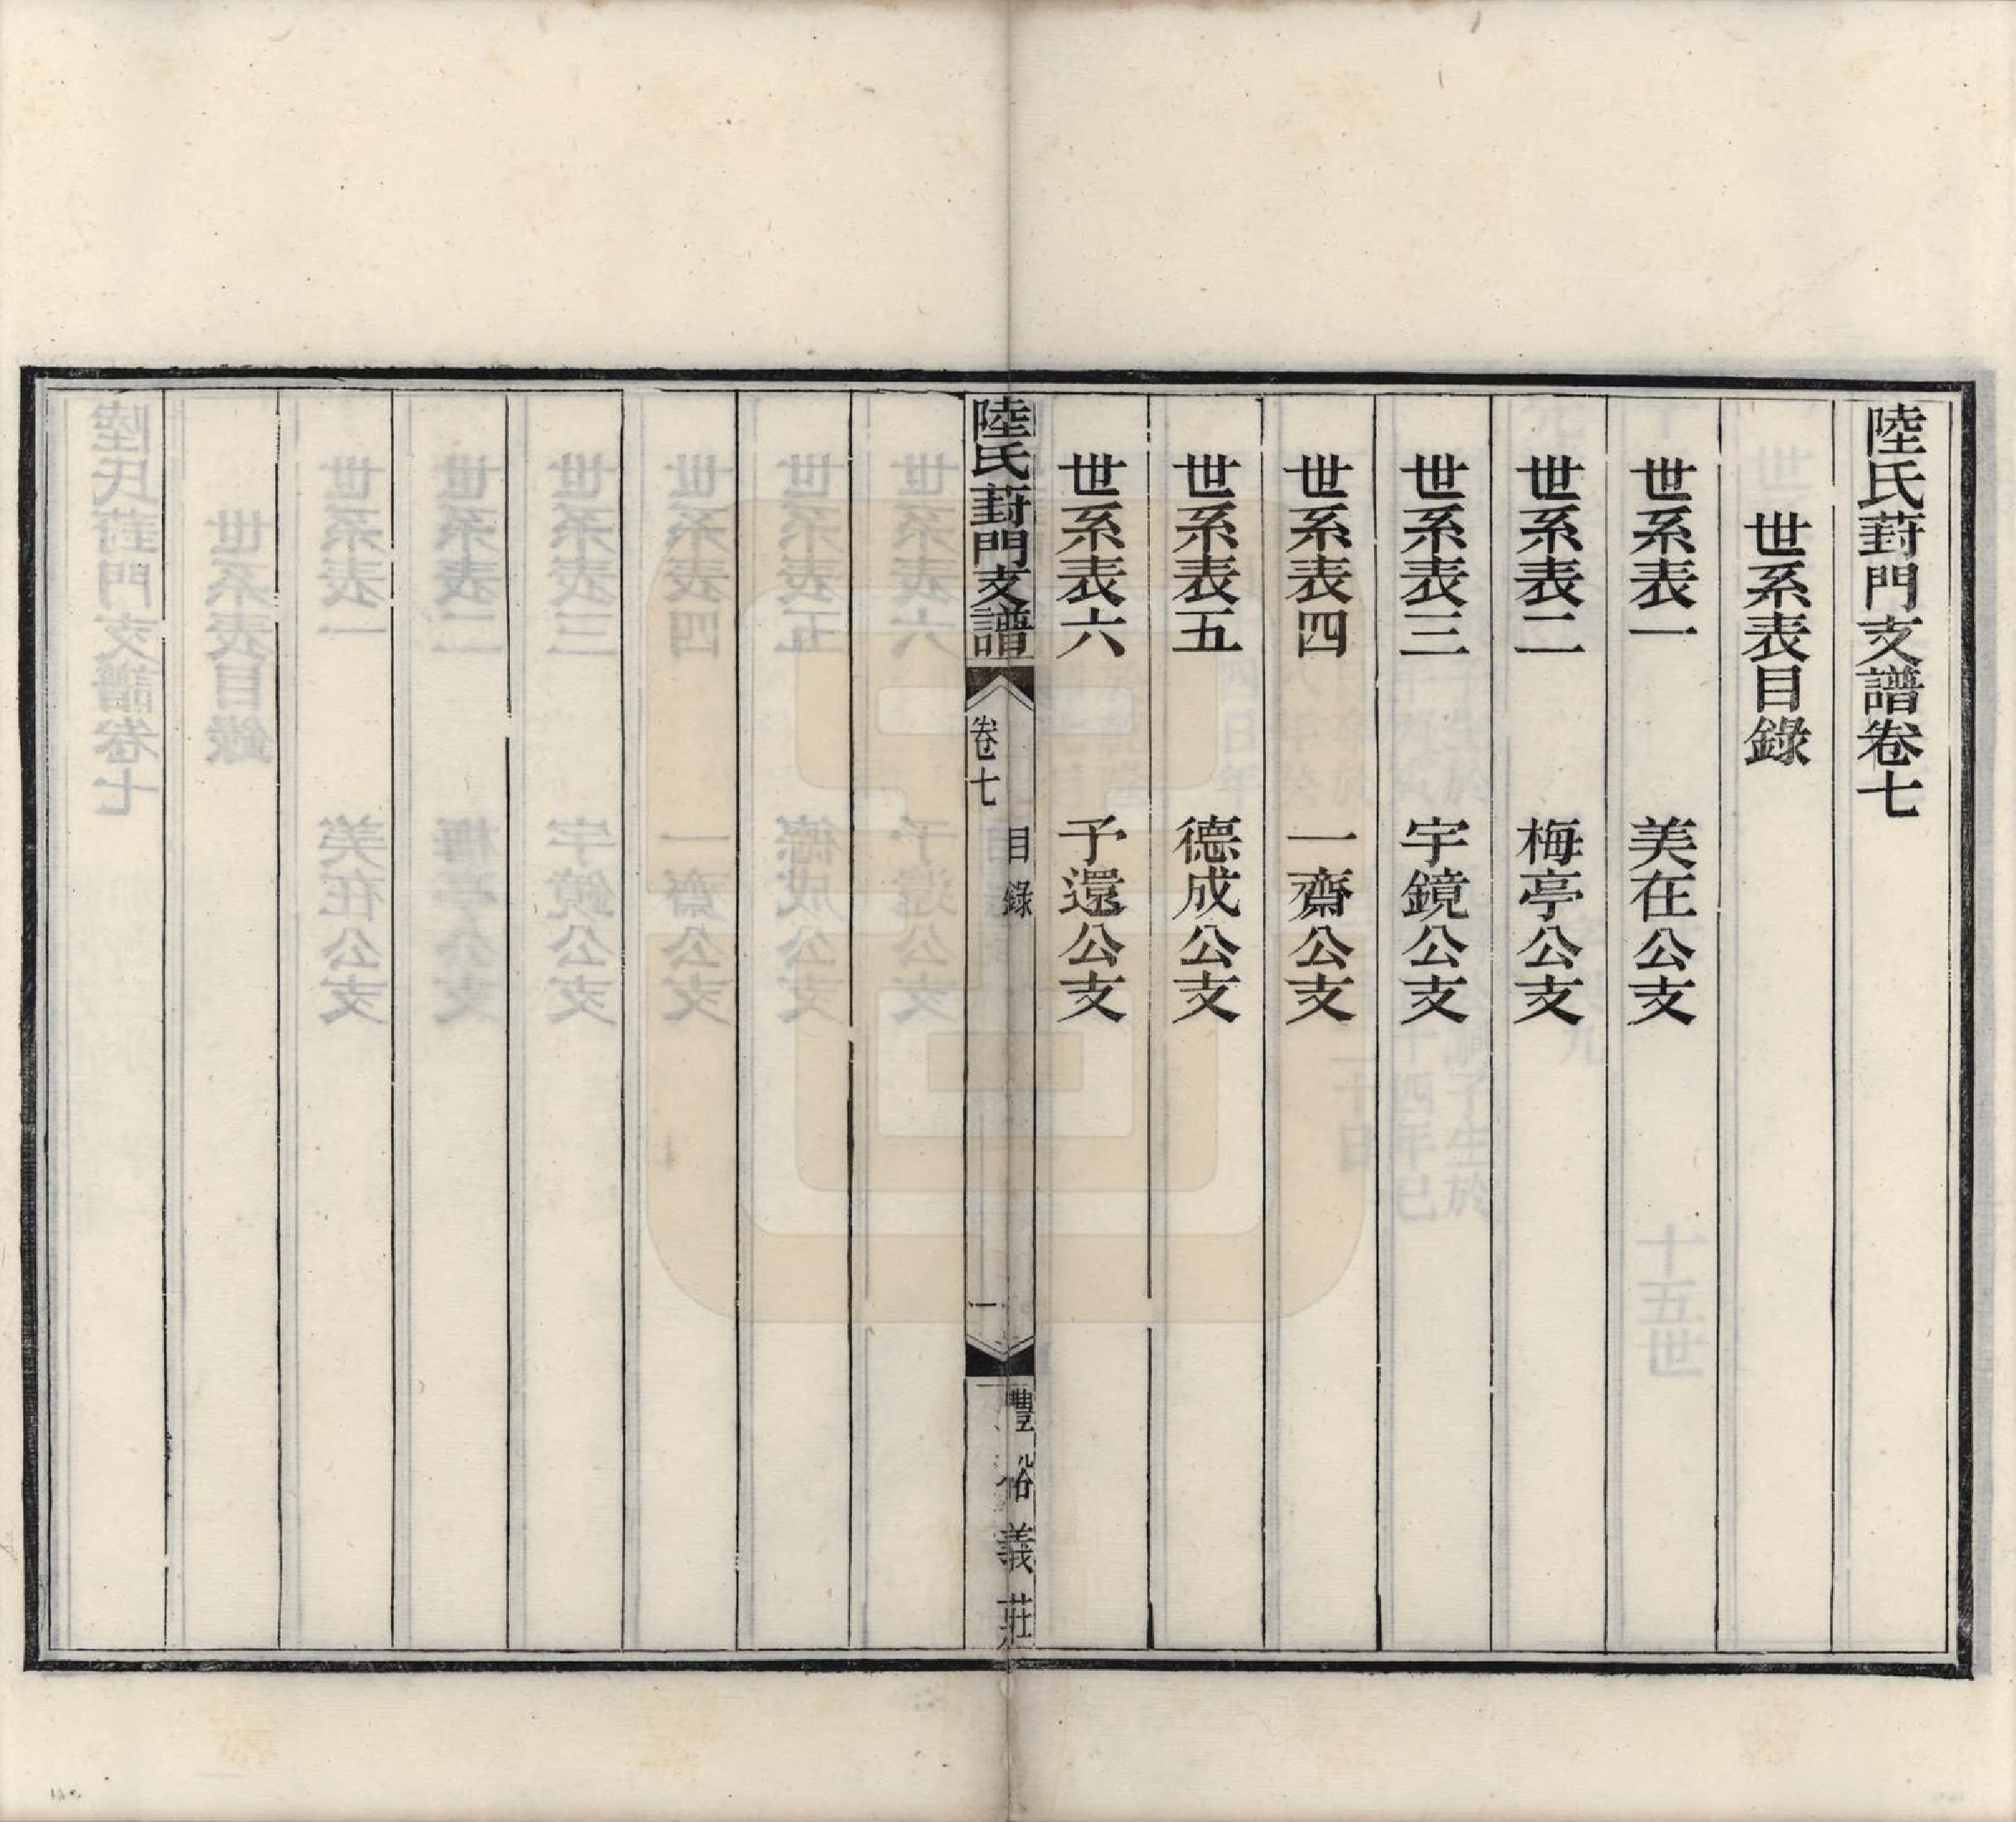 陸氏葑門支譜卷七
世系表目錄
世系表一 美在公支
世系表二 梅亭公支
世系表三 宇鏡公支
世系表四 一齋公支
世系表五 德成公支
世系表六 予還公支
陸氏葑門支譜 卷七 目錄 一 豐裕義莊